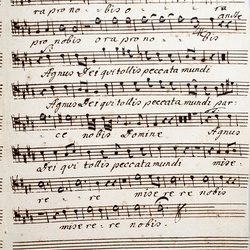 ra pro no bis o ra
andte
pro nobis ora pro no bis
Agnus Dei qui tollis peccata mundi
Agnus Dei qui tollis peccata mundi par
ce nobis Domine Agnus
Dei qui tollis peccata mundi mise:
re re mise re re nobis
mise re: re nobis.